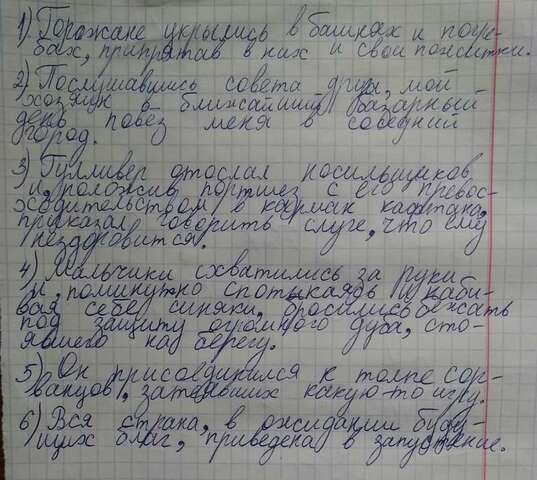 1) Горожане укрылись в башнях и погре-
бах, припрятав в них и свои пожитки.
2) Послушавшись совета друга, мой
хозяин в ближайший базарный
день повёз меня в соседний
город.
3) Гулливер отослал носильщиков
и, положив портшез с его превос-
ходительством в карман кафтана,
приказал говорить слуге, что ему
нездоровится.
4) Мальчики схватились за руки
и, поминутно спотыкаясь и наби-
вая себе синяки, бросились бежать
под защиту огромного дуба, сто-
явшего на берегу.
5) Он присоединился к толпе сор-
ванцов, затеявших какую-то игру.
6) Вся страна, в ожидании буду-
щих благ, приведена в запустение.